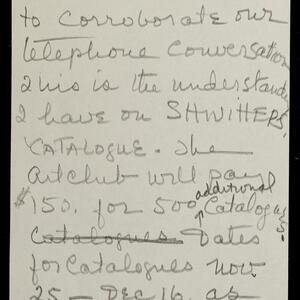 to corroborate our
telephone conversation
This is the understanding
I have on SHWITTERS,
CATALOGUE. The
Artclub will pay
additional
$150. for 500 Catalogues.
Catalogues Dates
for Catalogues Nov.
25 — Dec 16. as